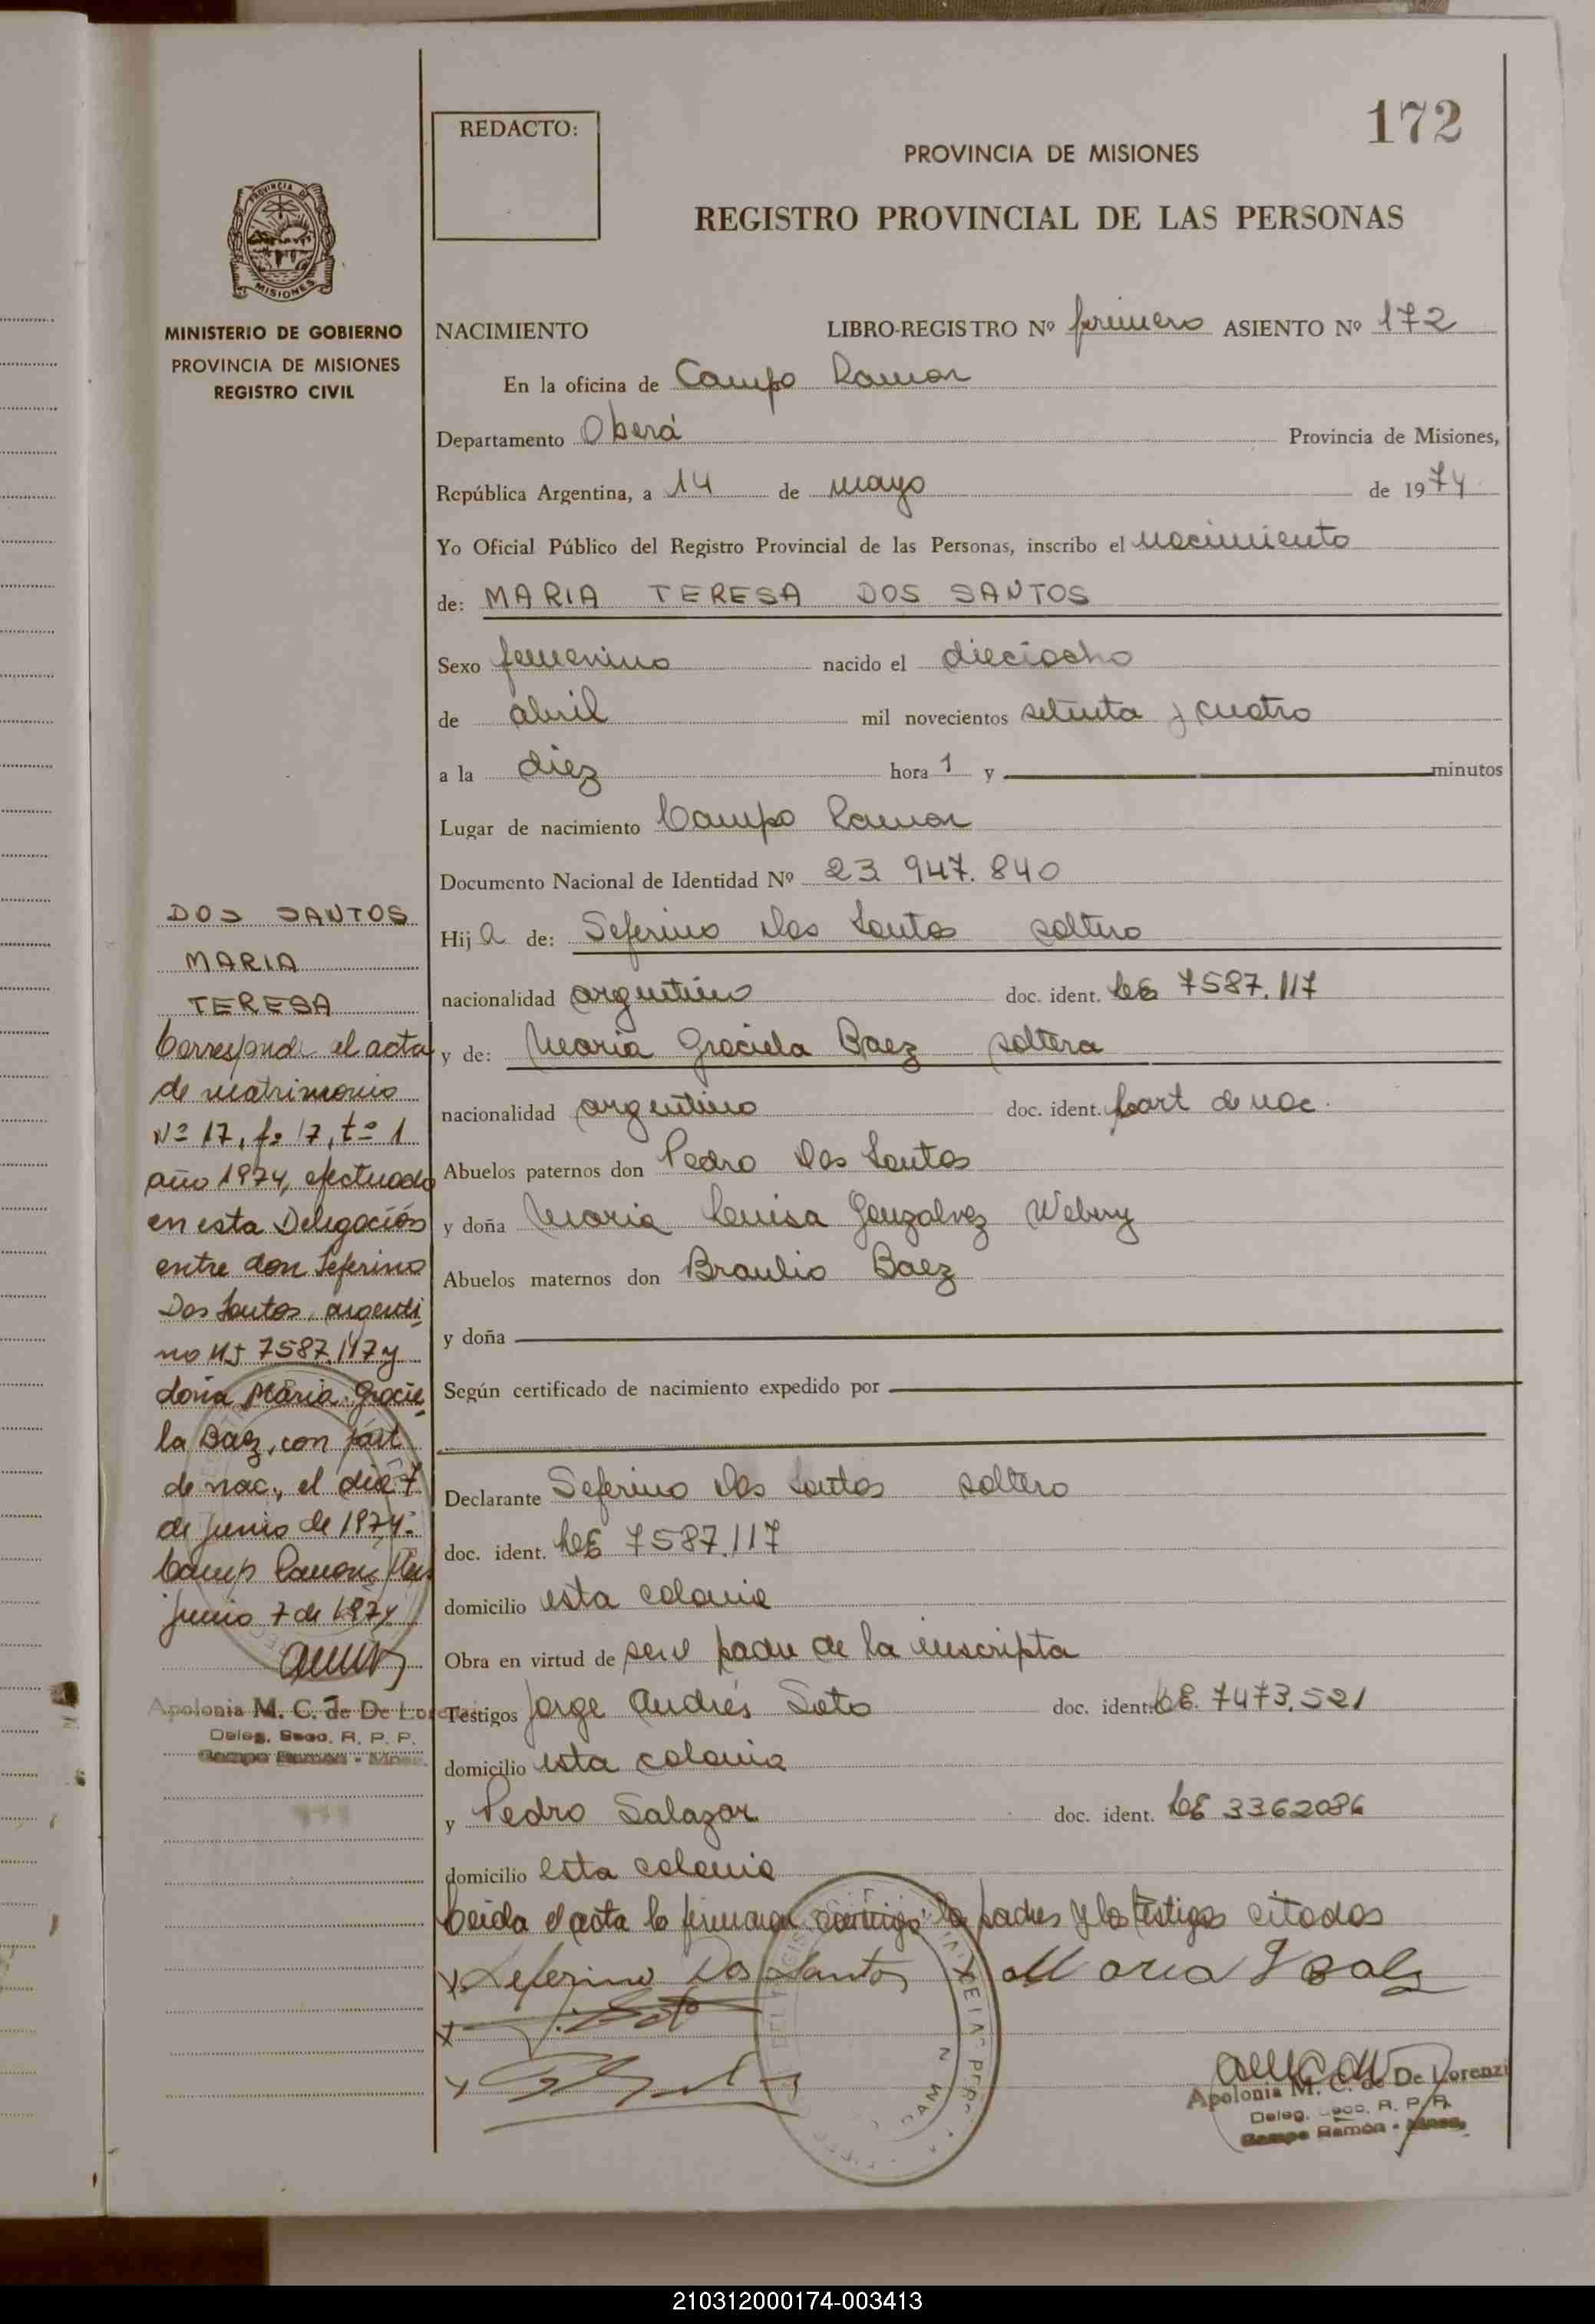 172
REDACTO:
PROVINCIA DE MISIONES
REGISTRO PROVINCIAL DE LAS PERSONAS
PROVINCIA DE
MISIONES
MINISTERIO DE GOBIERNO
PROVINCIA DE MISIONES
REGISTRO CIVIL
NACIMIENTO LIBRO-REGISTRO Nº primero ASIENTO Nº 172
En la oficina de Campo Ramon
Departamento Oberá Provincia de Misiones,
República Argentina, a 14 de mayo de 1974
Yo Oficial Público del Registro Provincial de las Personas, inscribo el nacimiento
de: MARIA TERESA DOS SANTOS
Sexo femenino nacido el dieciocho
de abril mil novecientos setenta y cuatro
a la diez hora 1 y minutos
Lugar de nacimiento Campo Ramon
Documento Nacional de Identidad Nº 23 947.840
Hija de: Seferino Dos Santos soltero
nacionalidad argentino doc. ident. LE 7587.117
y de: Maria Graciela Baez soltera
nacionalidad argentino doc. ident. part de nac.
Abuelos paternos don Pedro Dos Santos
y doña Maria Luisa Gonzalvez
Abuelos maternos don Braulio Baez
y doña
Según certificado de nacimiento expedido por
Declarante Seferino Dos Santos soltero
doc. ident. LE 7587.117
domicilio esta colonia
Obra en virtud de ser el padre de la inscripta
Testigos Jorge Andrés Soto doc. ident. LE. 7473.521
domicilio esta colonia
y Pedro Salazar doc. ident. LE 3362086
domicilio esta colonia
Leida el acta la firman conmigo los padres y los testigos citados
x Seferino Dos Santos x Maria G Baez
x J. Soto
x
Apolonia M. C. de De Lorenzi
Deleg. Secc. R. P. P.
Campo Ramón - Mnes.
DOS SANTOS
MARIA
TERESA
Corresponde el acta
de matrimonio
Nº 17, fº 17, tº 1
año 1974, efectuado
en esta Delegación
entre don Seferino
Dos Santos, argenti
no MI 7587.117 y
doña Maria Gracie
la Baez, con part
de nac., el dia 7
de junio de 1974.
Campo Ramon, Mnes
junio 7 de 1974
Apolonia M. C. de De Lorenzi
Deleg. Secc. R. P. P.
Campo Ramón - Mnes.
210312000174-003413